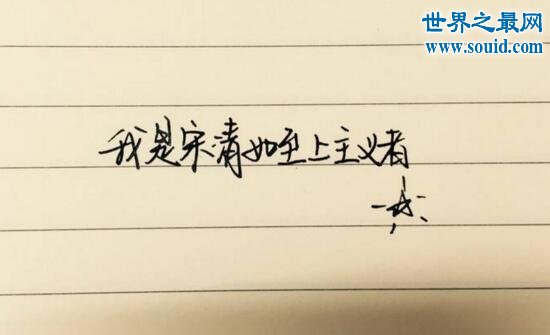 世界之最网
www.souid.com
我是宋清如至上主义者